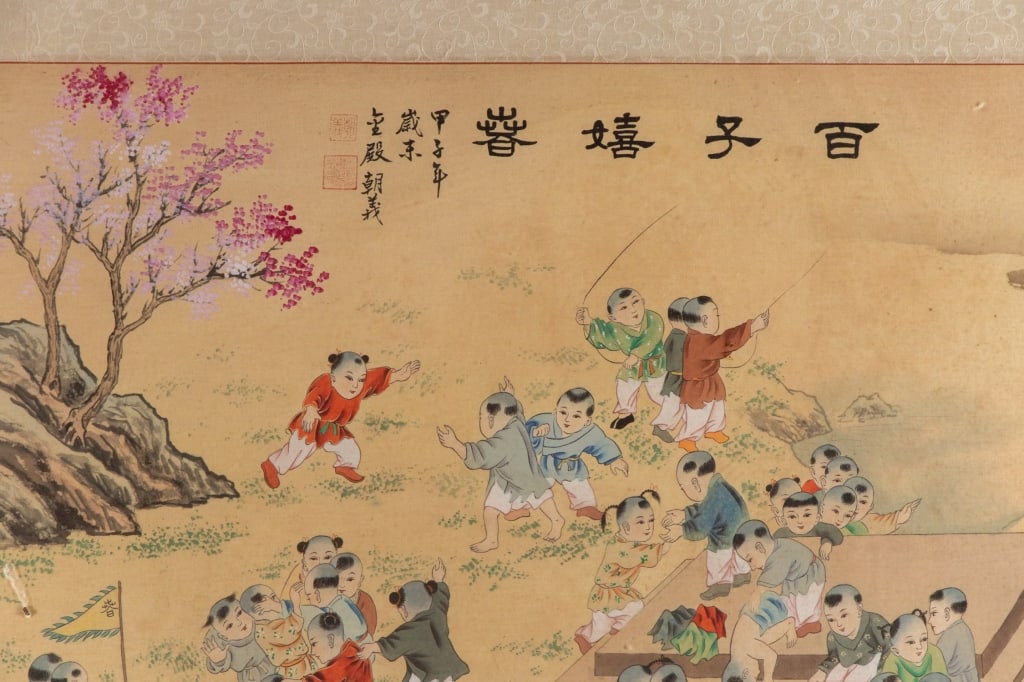 百子嬉春
甲子年
歲末
金殿朝義
春